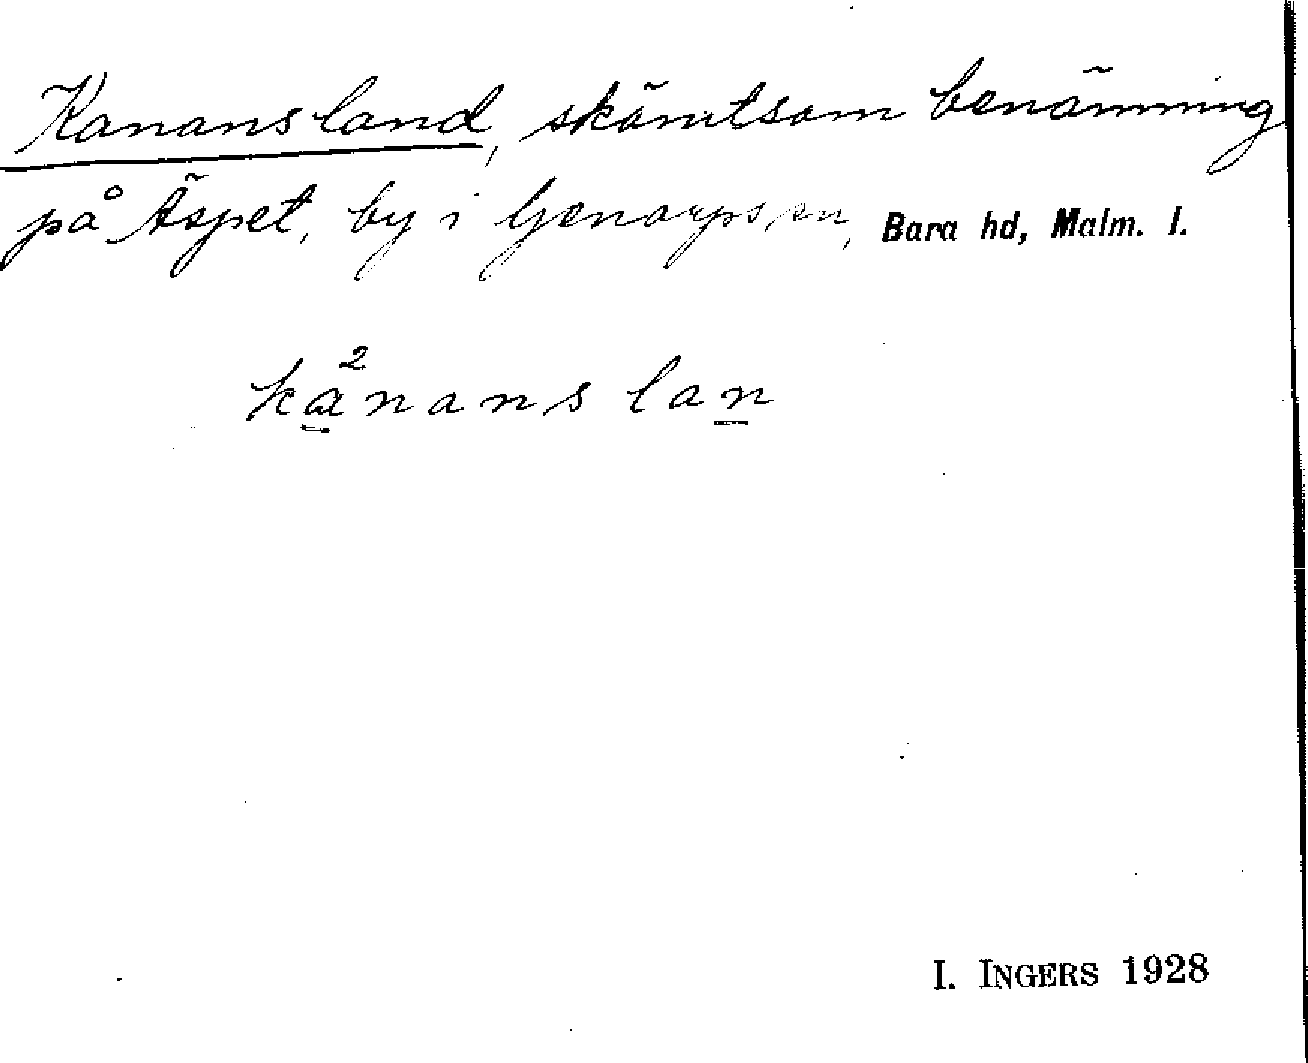 Kanansland, skämtsam benämning
på Äspet, by i Genarps sn, Bara hd, Malm. l.
kа̲²nans lan̲
I. INGERS 1928